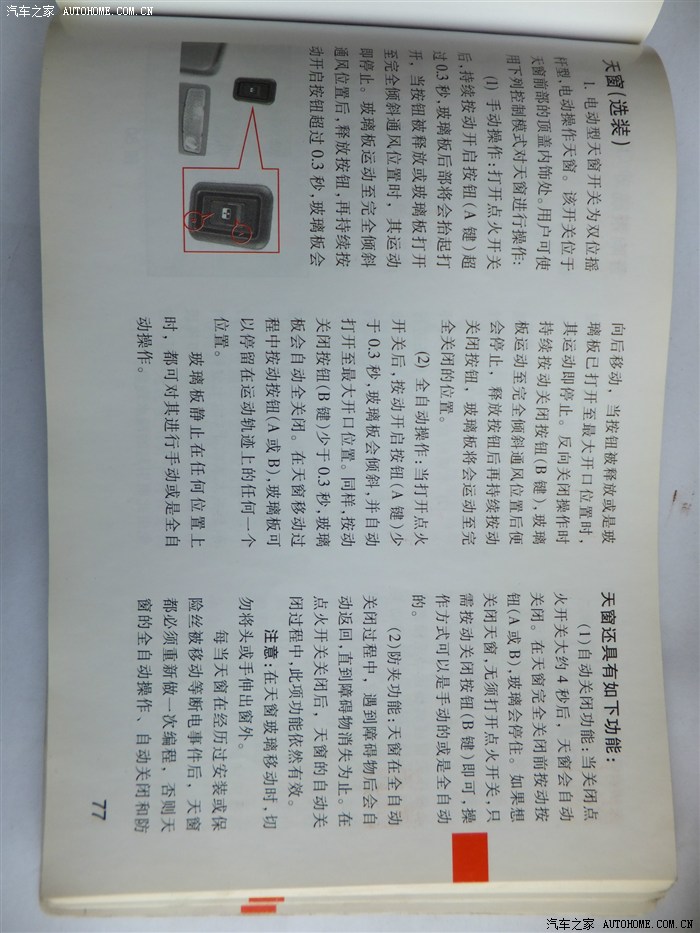 汽车之家 AUTOHOME.COM.CN
天窗(选装)
1. 电动型天窗开关为双位摇
杆型,电动操作天窗。该开关位于
天窗前部的顶盖内饰处。用户可使
用下列控制模式对天窗进行操作:
(1) 手动操作:打开点火开关
后,持续按动开启按钮(A 键)超
过0.3 秒,玻璃板后部将会抬起打
开,当按钮被释放或玻璃板打开
至完全倾斜通风位置时,其运动
即停止。玻璃板运动至完全倾斜
通风位置后,释放按钮,再持续按
动开启按钮超过 0.3 秒,玻璃板会
向后移动,当按钮被释放或是玻
璃板已打开至最大开口位置时,
其运动即停止。反向关闭操作时
持续按动关闭按钮(B 键),玻璃
板运动至完全倾斜通风位置后便
会停止,释放按钮后再持续按动
关闭按钮,玻璃板将会运动至完
全关闭的位置。
(2) 全自动操作:当打开点火
开关后,按动开启按钮(A 键)少
于0.3 秒,玻璃板会倾斜,并自动
打开至最大开口位置。同样,按动
关闭按钮(B 键)少于 0.3 秒,玻璃
板会自动全关闭。在天窗移动过
程中按动按钮(A 或 B),玻璃板可
以停留在运动轨迹上的任何一个
位置。
玻璃板静止在任何位置上
时,都可对其进行手动或是全自
动操作。
天窗还具有如下功能:
(1)自动关闭功能:当关闭点
火开关大约 4 秒后,天窗会自动
关闭。在天窗完全关闭前按动按
钮(A 或 B),玻璃会停住。如果想
关闭天窗,无须打开点火开关,只
需按动关闭按钮(B 键)即可,操
作方式可以是手动的或是全自动
的。
(2)防夹功能:天窗在全自动
关闭过程中,遇到障碍物后会自
动返回,直到障碍物消失为止。在
点火开关关闭后,天窗的自动关
闭过程中,此项功能依然有效。
注意:在天窗玻璃移动时,切
勿将头或手伸出窗外。
每当天窗在经历过安装或保
险丝被移动等断电事件后,天窗
都必须重新做一次编程,否则天
窗的全自动操作、自动关闭和防
77
汽车之家 AUTOHOME.COM.CN